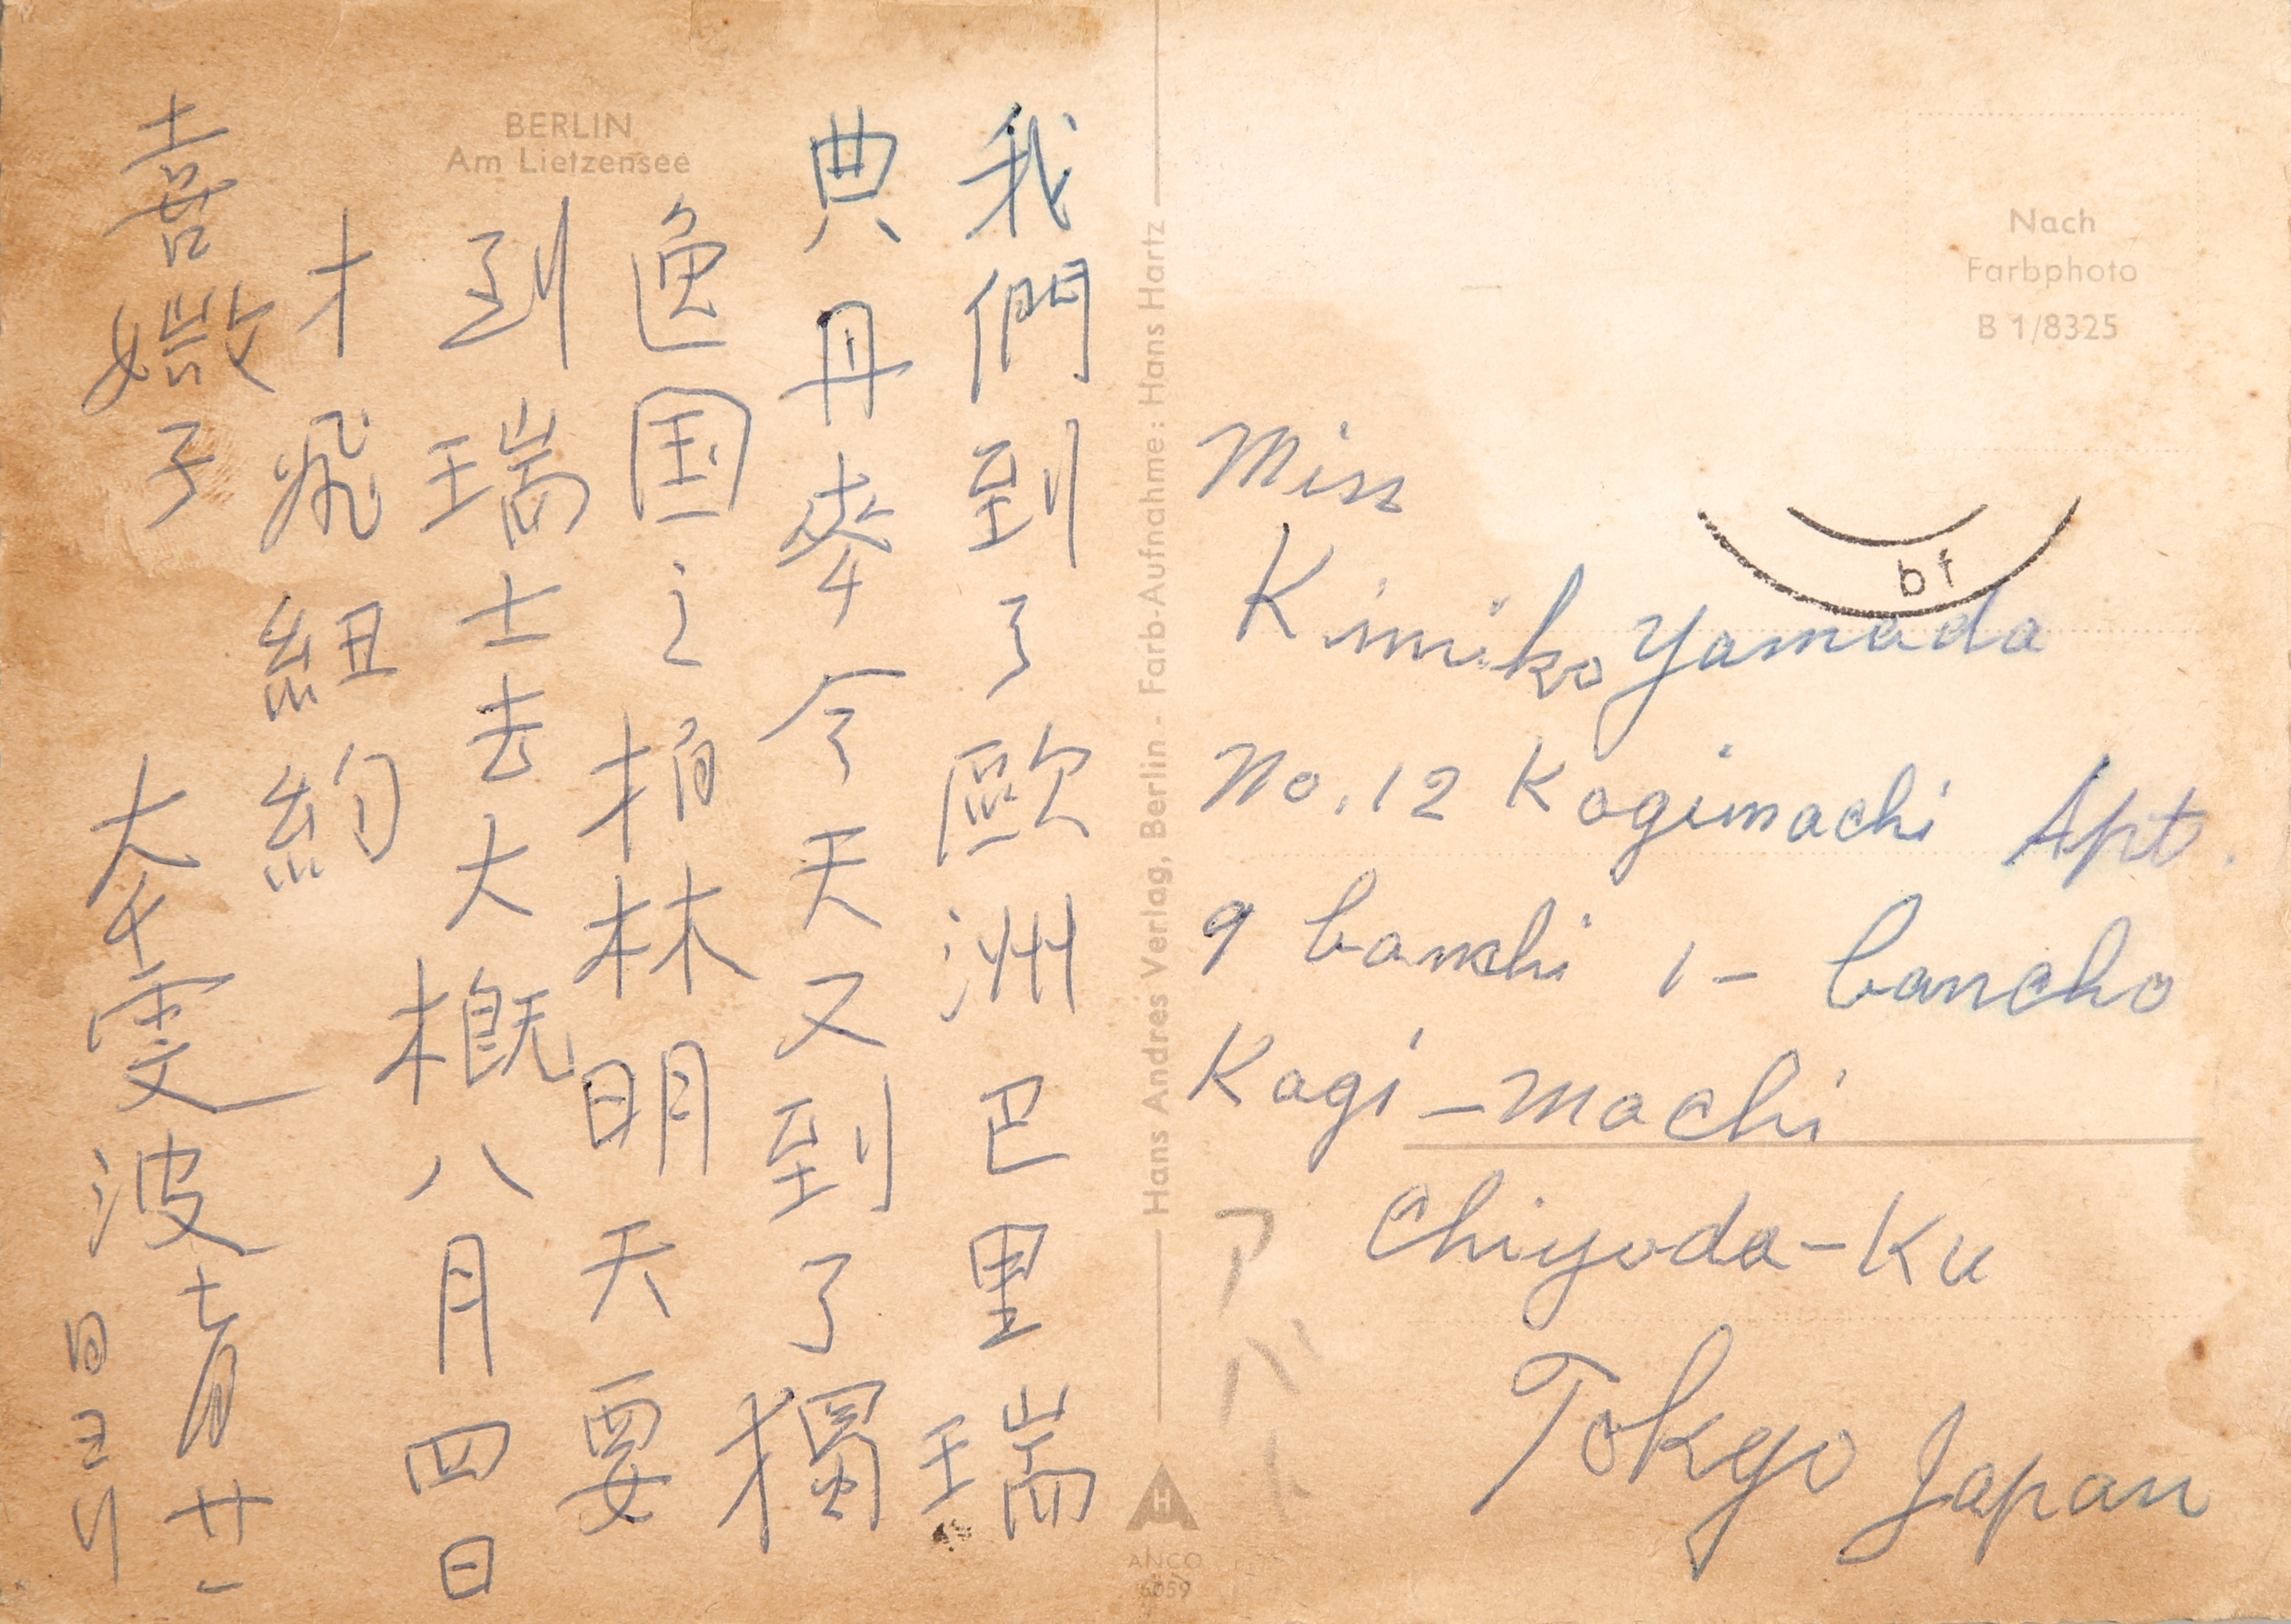 BERLIN
Am Lietzensee
我們到了歐洲巴里瑞
典丹麥今天又到了獨
逸国之柏林明天要
到瑞士去大概八月四日
才飛紐約
喜媺子
波
Hans Andres Verlag, Berlin - Farb-Aufnahme: Hans Hartz
ANCO
6059
Nach
Farbphoto
B 1/8325
bf
Miss
Kimiko Yamada
No. 12 Kogimachi Apt.
9 banchi 1- bancho
Kogi-machi
Chiyoda-Ku
Tokyo Japan
アパート